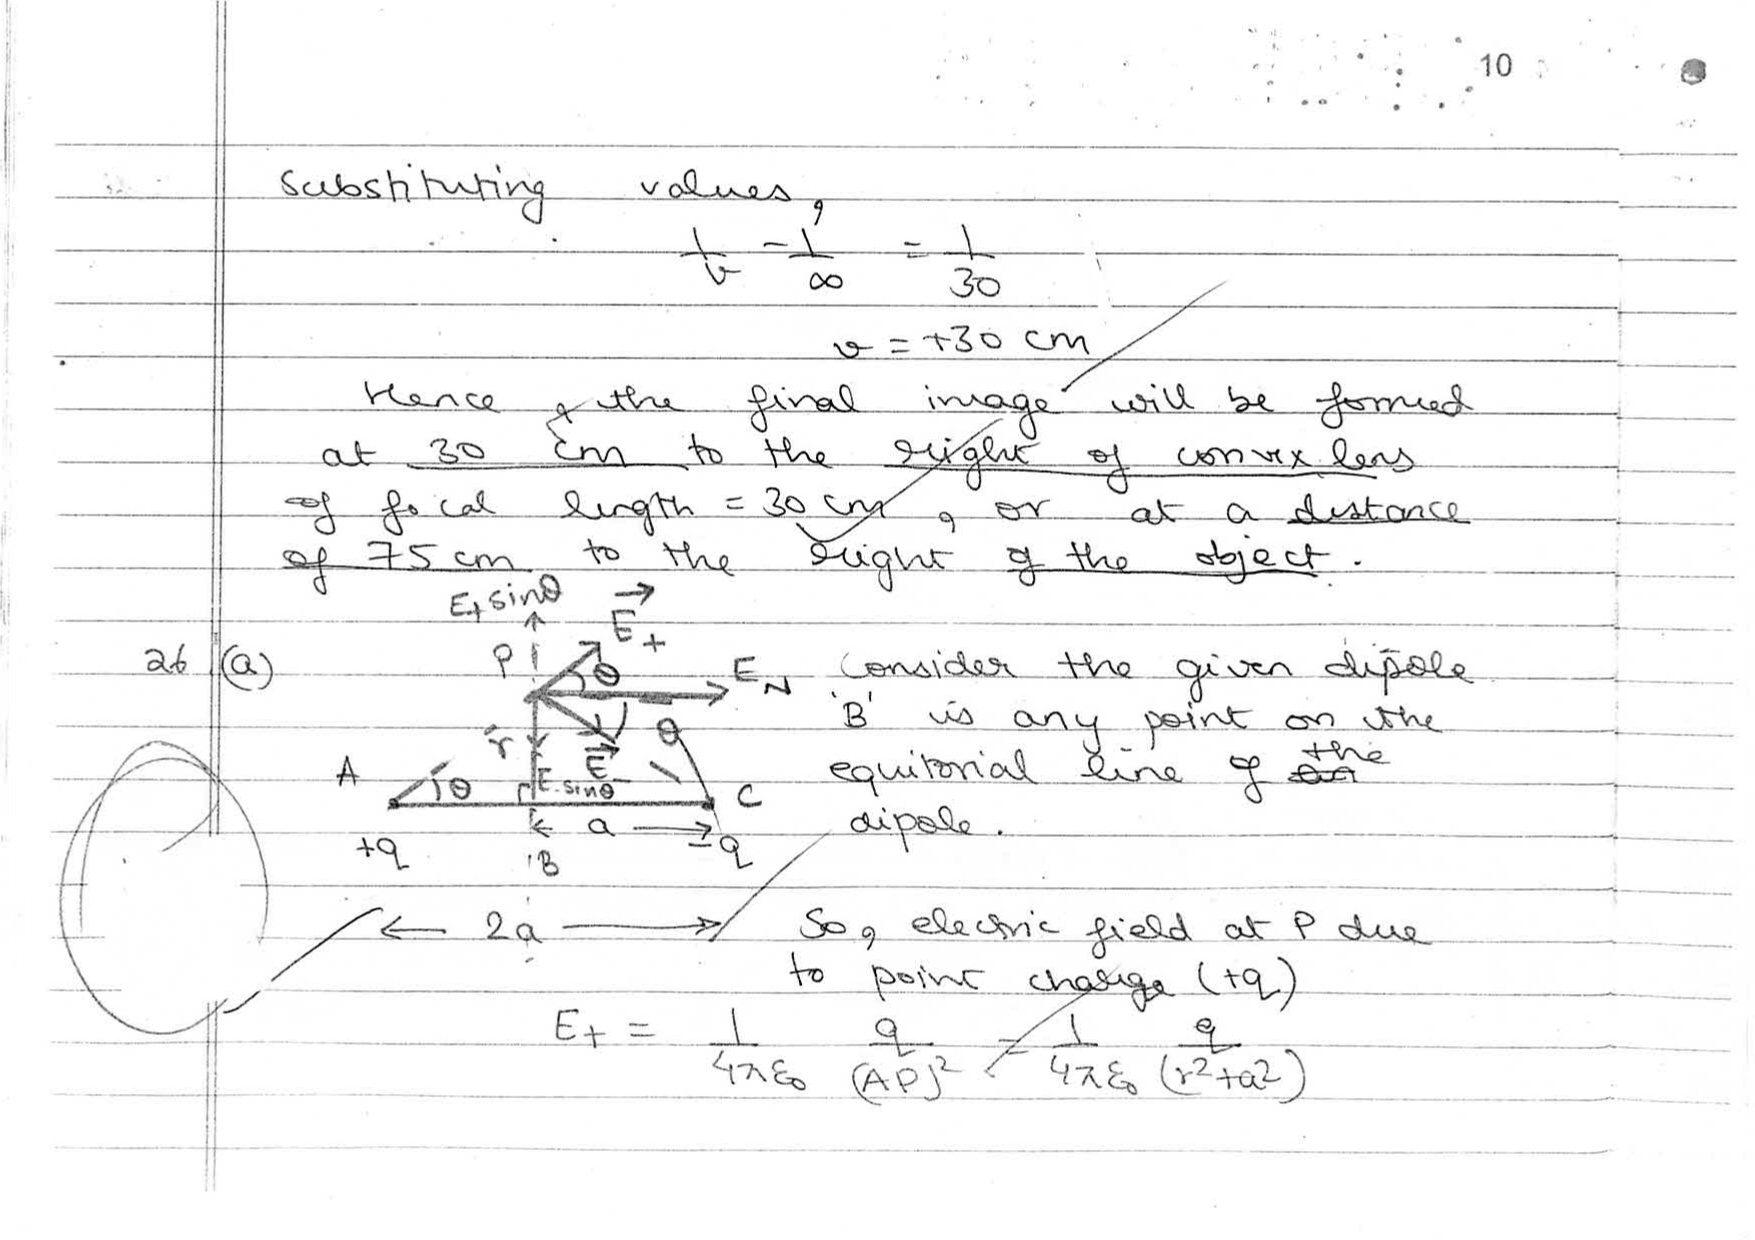 10
substituting values,
1/v - 1/∞ = 1/30
v = +30 cm
Hence, the final image will be formed
at 30 cm to the right of convex lens
of focal length = 30 cm, or at a distance
of 75 cm to the right of the object.
26 (a)
E+ sinθ
E+
P
θ
EN
r
θ
E-
E- sinθ
A
θ
C
a
+q
-q
B
2a
Consider the given dipole
'B' is any point on the
equitorial line of the
dipole.
So, electric field at P due
to point charge (+q)
E+ = 1/4πε₀ q/(AP)² = 1/4πε₀ q/(r²+a²)